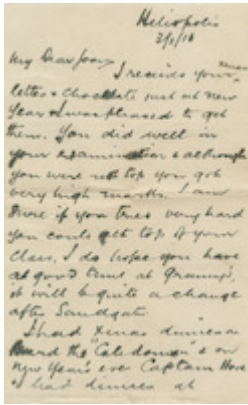 Heliopolis
2/1/16
My Dear Joan
I received your Xmas
letter & chocolate just at new
Year & was pleased to get
them. You did well in
your examination & although
you were not top you got
very high marks. I am
sure if you tries very hard
you could get top of your
class. I do hope you have
at good time at Granny's,
it will be quite a change
after Sandgate.
I had Xmas dinner on
Board the "Caledonian" & on
New Year's eve Captain
I had dinner at